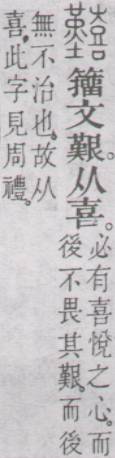 囏 籒文艱。从喜。
必有喜悅之心。而
後不畏其艱。而後
無不治也。故从
喜。此字見周禮。